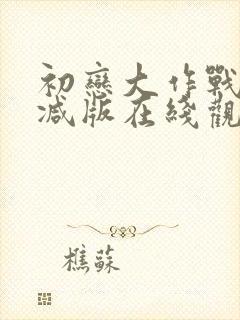 初戀大作戰
減版在綫觀
樵蘇